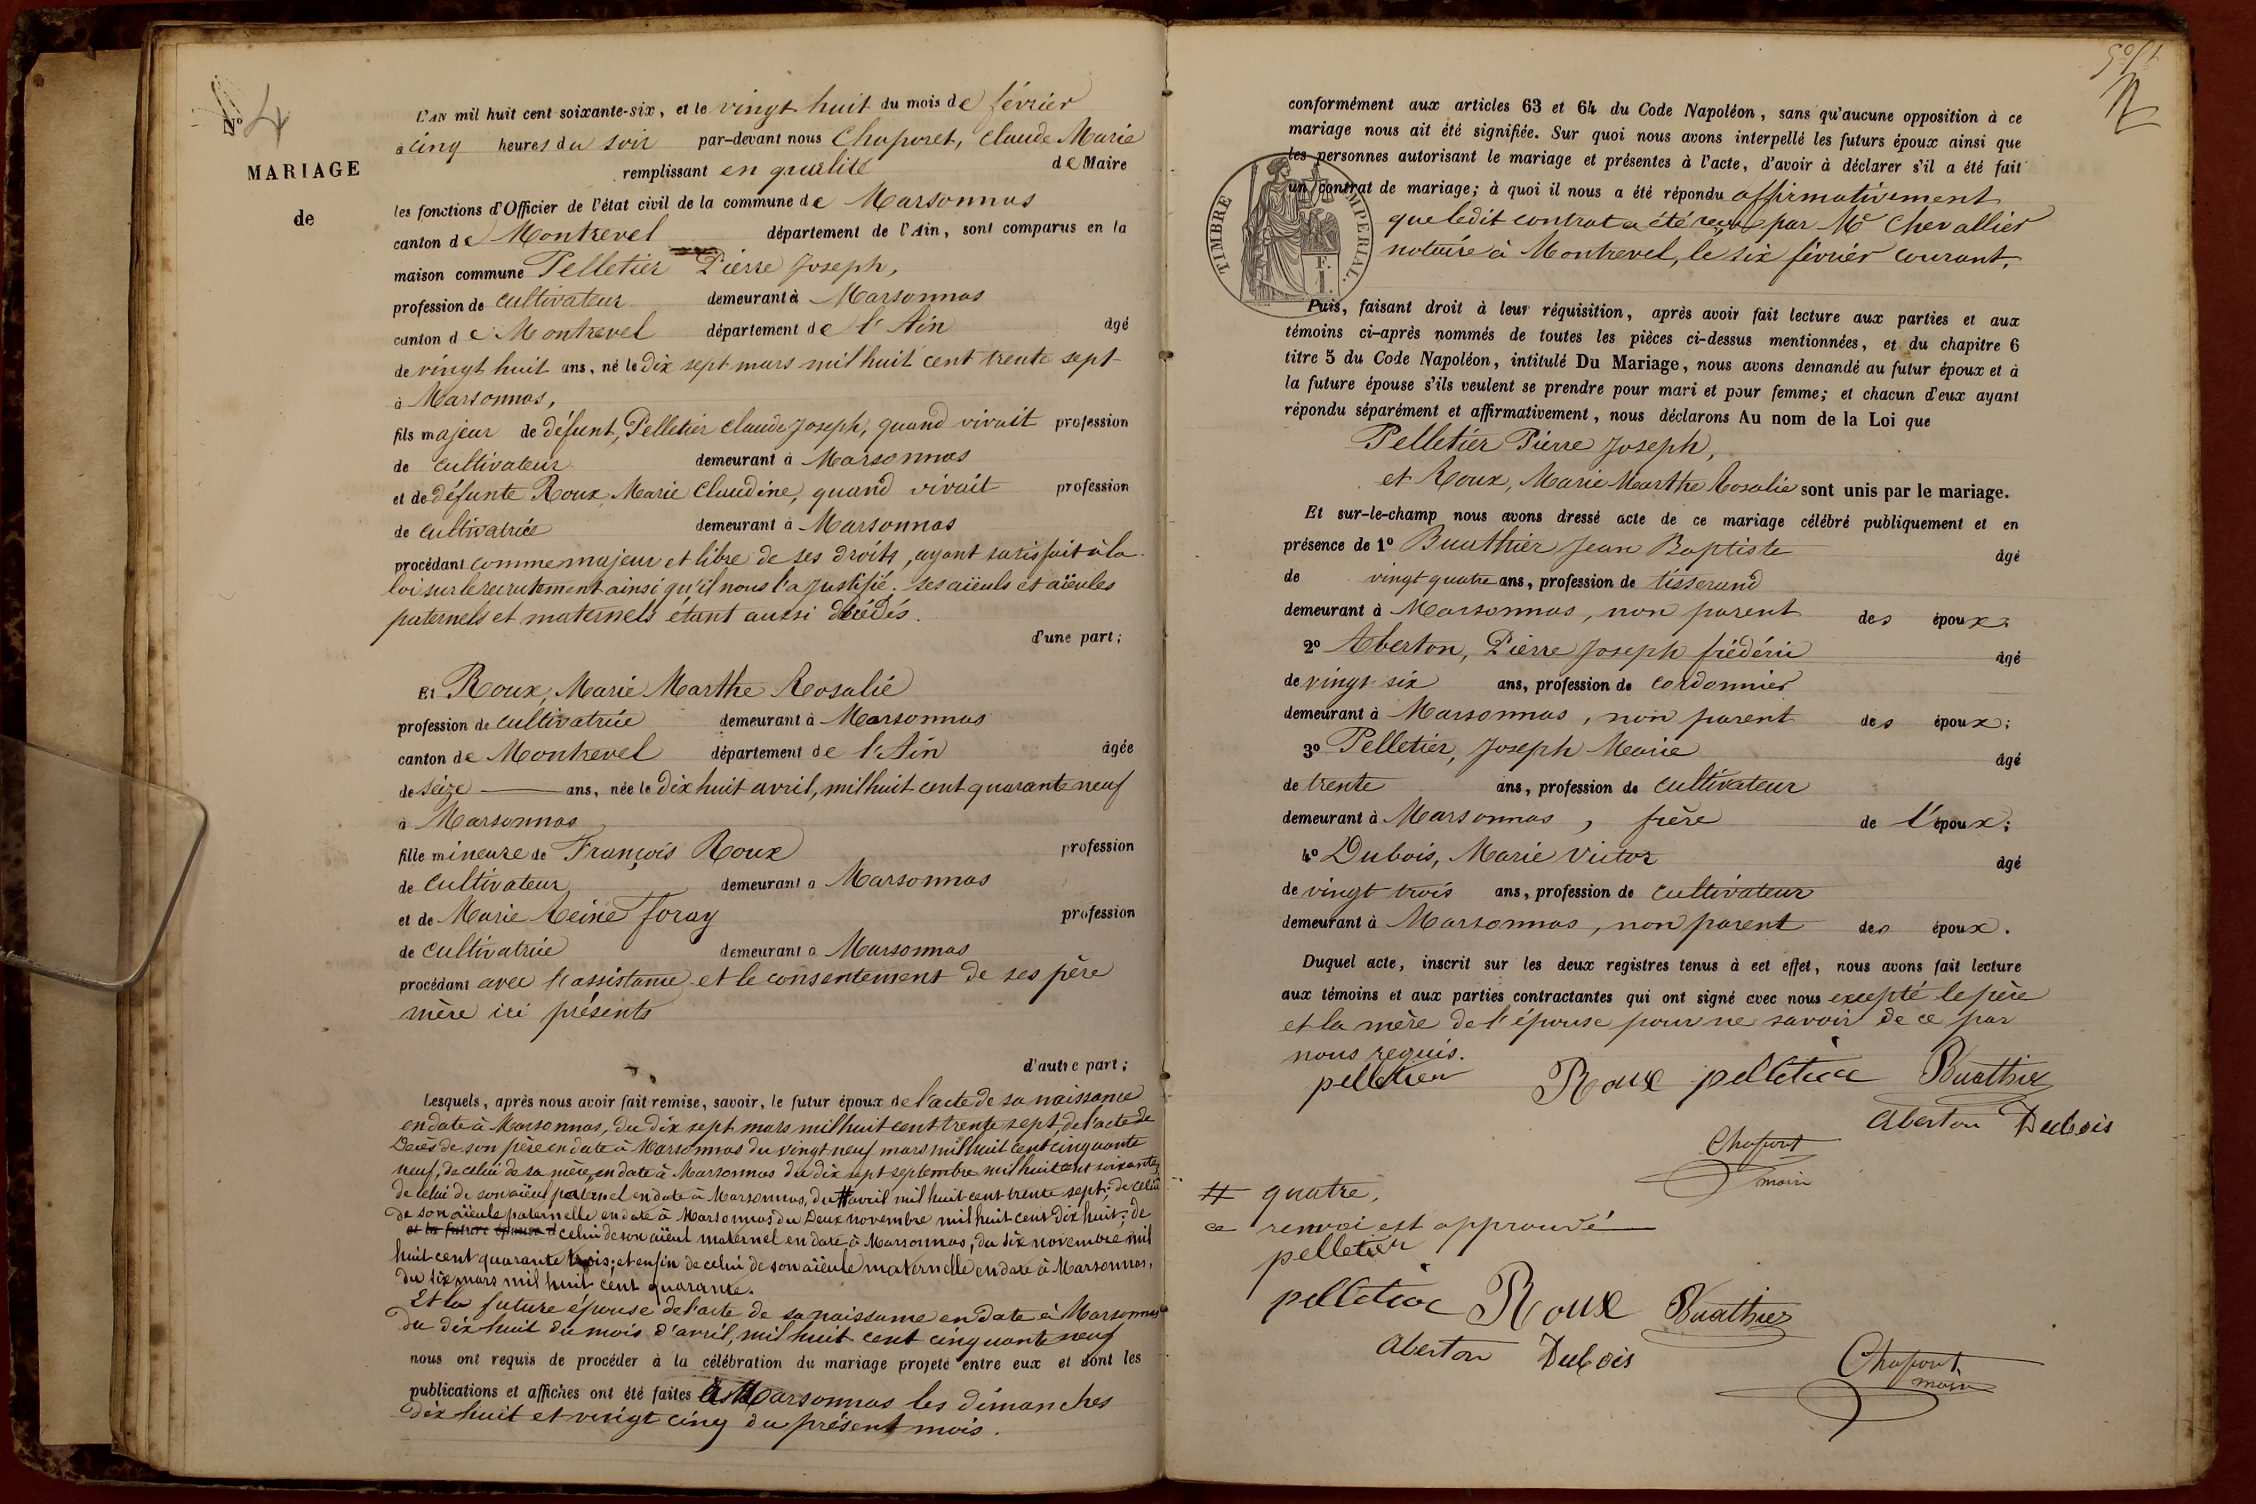 N° 4
MARIAGE
de
L'AN mil huit cent soixante-six, et le vingt huit du mois de février
à cinq heures du soir par-devant nous Chaporet, Claude Marie
remplissant en qualité de Maire
les fonctions d'Officier de l'état civil de la commune de Marsonnas
canton de Montrevel département de l'Ain, sont comparus en la
maison commune Pelletier Pierre Joseph,
profession de cultivateur demeurant à Marsonnas
canton de Montrevel département de l'Ain âgé
de vingt huit ans, né le dix sept mars mil huit cent trente sept
à Marsonnas,
fils majeur de défunt, Pelletier Claude Joseph, quand vivait profession
de cultivateur demeurant à Marsonnas
et de défunte Roux, Marie Claudine, quand vivait profession
de cultivatrice demeurant à Marsonnas
procédant comme majeur et libre de ses droits, ayant satisfait à la
loi sur le recrutement ainsi qu'il nous l'a justifié. Ses aïeuls et aïeules
paternels et maternels étant aussi décédés.
d'une part;
Et Roux, Marie Marthe Rosalie
profession de cultivatrice demeurant à Marsonnas
canton de Montrevel département de l'Ain âgée
de seize ans, née le dix huit avril, mil huit cent quarante neuf
à Marsonnas
fille mineure de François Roux profession
de cultivateur, demeurant à Marsonnas
et de Marie Reine Foray profession
de cultivatrice demeurant à Marsonnas
procédant avec l'assistance et le consentement de ses père
mère ici présents
d'autre part;
Lesquels, après nous avoir fait remise, savoir, le futur époux de l'acte de sa naissance
en date à Marsonnas, du dix sept mars mil huit cent trente sept, de l'acte de
Décès de son père en date à Marsonnas du vingt neuf mars mil huit cent cinquante
neuf, de celui de sa mère, en date à Marsonnas du dix sept septembre mil huit cent soixante,
de celui de son aïeul paternel en date à Marsonnas, du # avril mil huit cent trente sept; de celui
de son aïeule paternelle en date à Marsonnas du Deux novembre mil huit cent dix huit; de
et la future épouse d celui de son aïeul maternel en date à Marsonnas, du six novembre mil
huit cent quarante trois; et enfin de celui de son aïeule maternelle en date à Marsonnas,
du six mars mil huit cent quarante.
Et la future épouse de l'acte de sa naissance en date à Marsonnas
du dix huit du mois d'avril, mil huit cent cinquante neuf
nous ont requis de procéder à la célébration du mariage projeté entre eux et dont les
publications et affiches ont été faites à Marsonnas les dimanches
dix huit et vingt cinq du présent mois.
conformément aux articles 63 et 64 du Code Napoléon, sans qu'aucune opposition à ce
mariage nous ait été signifiée. Sur quoi nous avons interpellé les futurs époux ainsi que
les personnes autorisant le mariage et présentes à l'acte, d'avoir à déclarer s'il a été fait
un contrat de mariage; à quoi il nous a été répondu affirmativement
que ledit contrat a été reçu par Me Chevallier
notaire à Montrevel, le six février courant.
TIMBRE IMPERIAL.
Puis, faisant droit à leur réquisition, après avoir fait lecture aux parties et aux
témoins ci-après nommés de toutes les pièces ci-dessus mentionnées, et du chapitre 6
titre 5 du Code Napoléon, intitulé Du Mariage, nous avons demandé au futur époux et à
la future épouse s'ils veulent se prendre pour mari et pour femme; et chacun d'eux ayant
répondu séparément et affirmativement, nous déclarons Au nom de la Loi que
Pelletier Pierre Joseph,
et Roux, Marie Marthe Rosalie sont unis par le mariage.
Et sur-le-champ nous avons dressé acte de ce mariage célébré publiquement et en
présence de 1° Buathier Jean Baptiste âgé
de vingt quatre ans, profession de tisserand
demeurant à Marsonnas, non parent des époux;
2° Aberton, Pierre Joseph frédéric âgé
de vingt six ans, profession de cordonnier
demeurant à Marsonnas, non parent des époux;
3° Pelletier, Joseph Marie âgé
de trente ans, profession de cultivateur
demeurant à Marsonnas, frère de l'époux;
4° Dubois, Marie Victor âgé
de vingt trois ans, profession de cultivateur
demeurant à Marsonnas, non parent des époux.
Duquel acte, inscrit sur les deux registres tenus à cet effet, nous avons fait lecture
aux témoins et aux parties contractantes qui ont signé avec nous excepté le père
et la mère de l'épouse pour ne savoir de ce par
nous requis.
pelletier Roux pelletier Buathier
Aberton Dubois
Chaporet
maire
# quatre,
ce renvoi est approuvé
pelletier
pelletier Roux Buathier
Aberton Dubois
Chaporet
maire